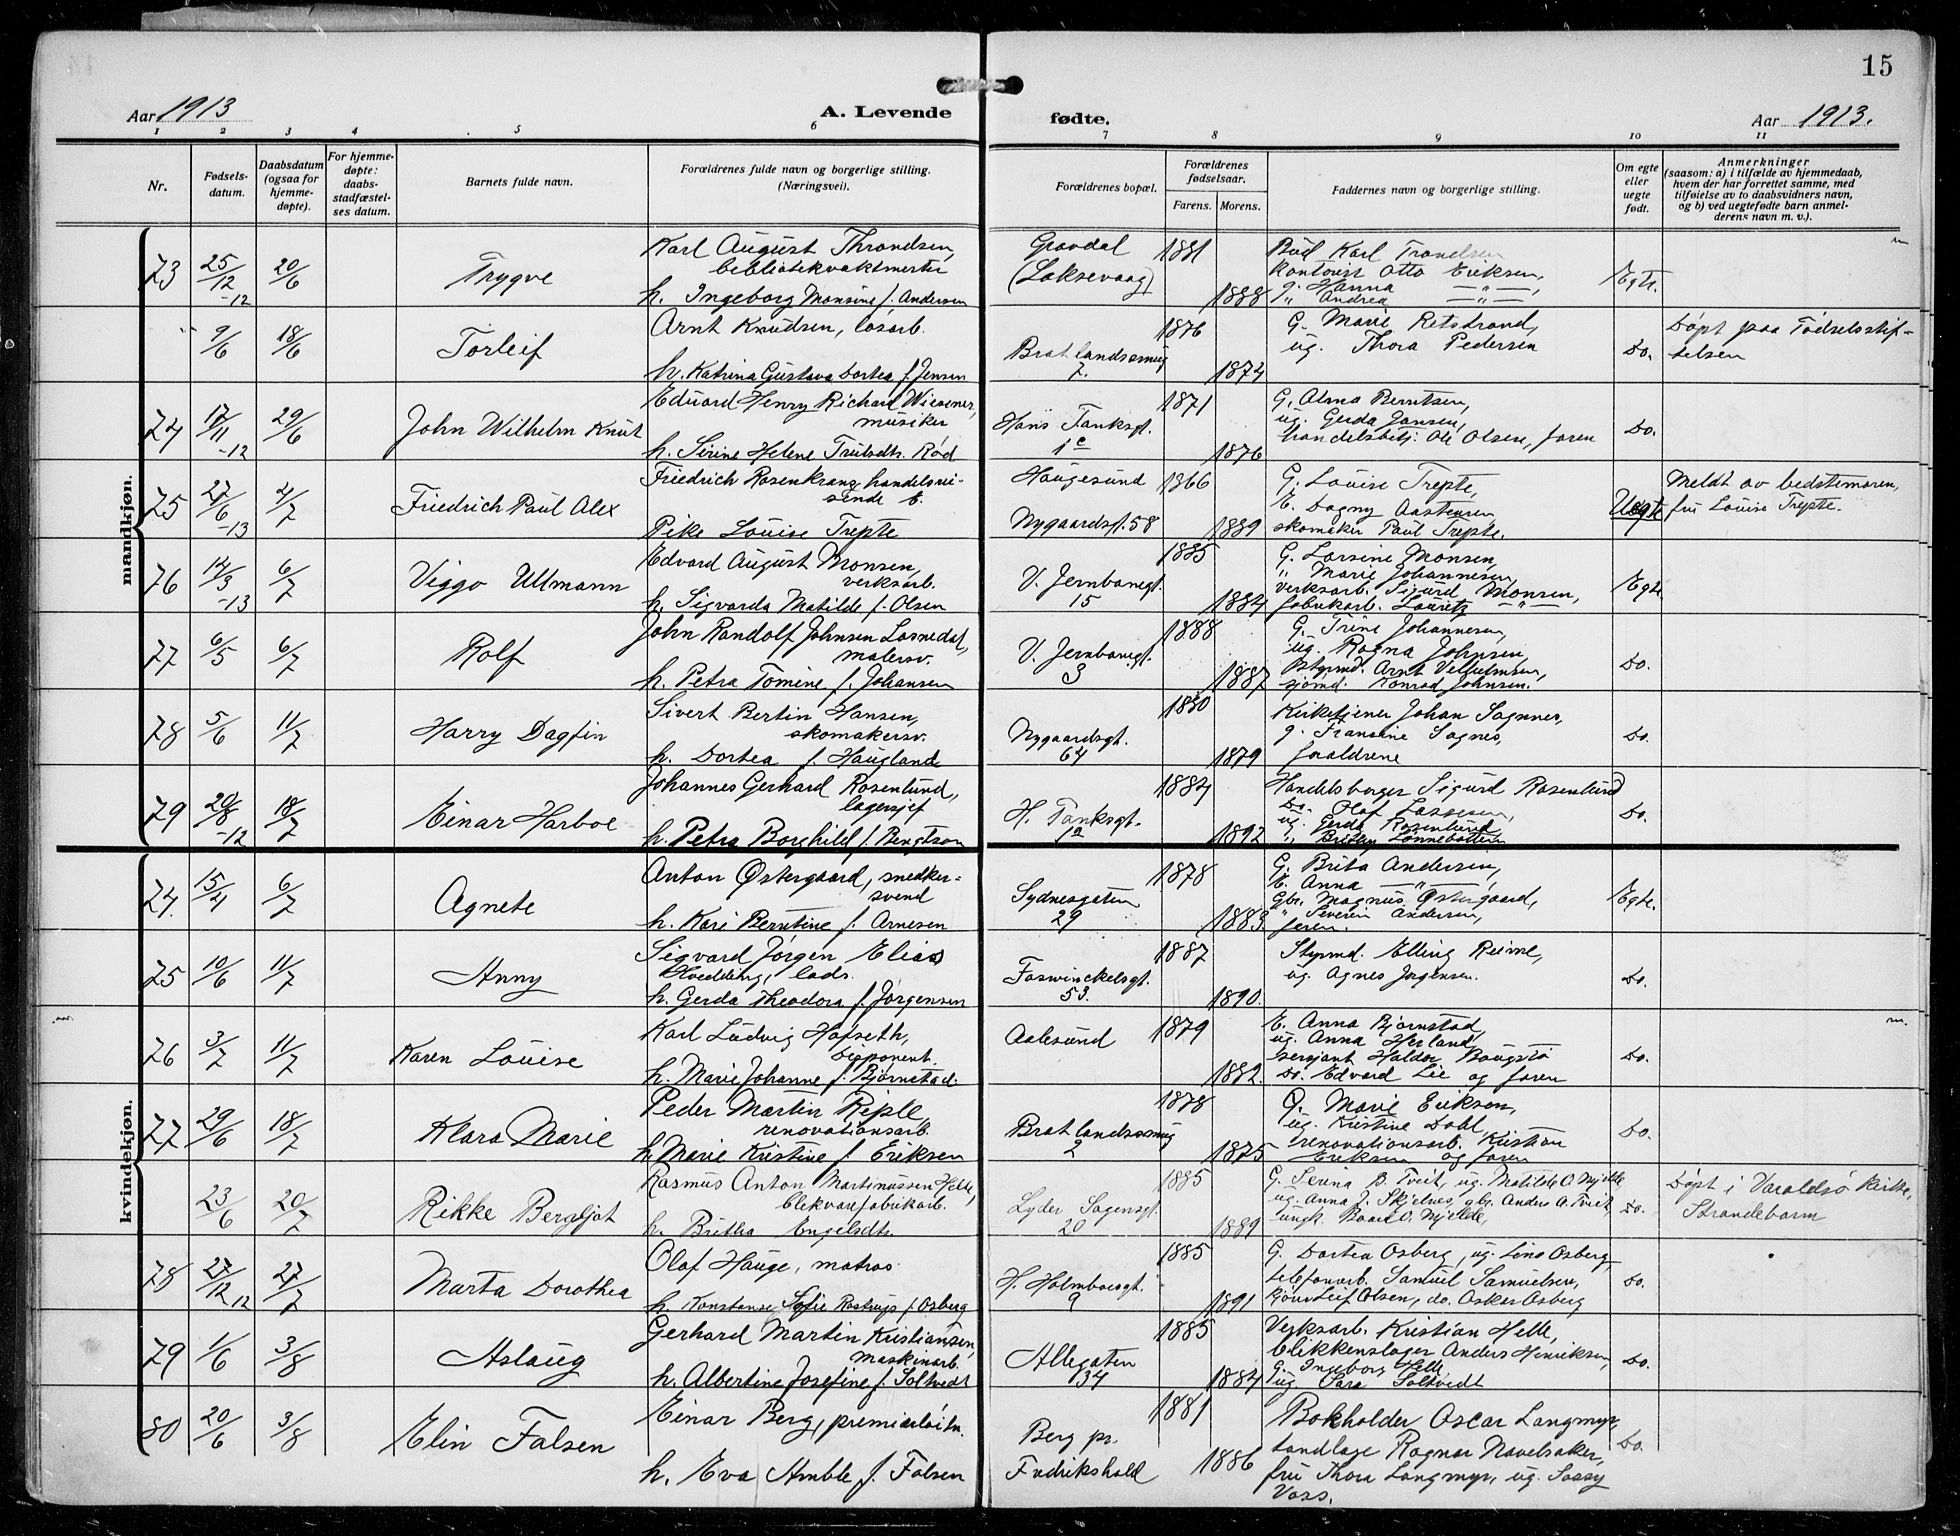 15
Aar 1913
A. Levende
fødte.
Aar 1913.
1 2 3 4 5 6 7 8 9 10 11
Nr.
Fødsels-
datum.
Daabsdatum
(ogsaa for
hjemme-
døpte).
For hjemme-
døpte:
daabs-
stadfæstel-
ses datum.
Barnets fulde navn.
Forældrenes fulde navn og borgerlige stilling.
(Næringsvei).
Forældrenes bopæl.
Forældrenes
fødselsaar.
Farens. Morens.
Faddernes navn og borgerlige stilling.
Om egte
eller
uegte
født.
Anmerkninger
(saasom: a) i tilfælde av hjemmedaab,
hvem der har forrettet samme, med
tilføielse av to daabsvidners navn,
og b) ved uegtefødte barn anmel-
derens navn m. v.).
mandkjøn.
73 25/12 -12 20/6 Trygve
Karl August Throndsen,
h. Ingeborg Monsine f. Andersen
Gravdal
(Laksevaag)
1881 1888
Karl Trondsen
kontorist Otto Eriksen,
g. Hanna —„—,
„ Andrea —„—
Egte.
" 9/6 18/6 Torleif
Arnt Knudsen, løsarb.
h. Katrina Gustava Dortea f. Jensen
Bratlandssmug
7.
1876 1874
G. Marie Retstrand,
ug. Thora Pedersen
Do.
Døpt paa Fødselsstif-
telsen
74 17/11 -12 29/6 John Wilhelm Knut
Eduard Henry Richard Wiesener,
musiker
h. Sirine Helene Trulsdtr. Rød
Hans Tanksgt.
1c
1871 1876
G. Alma Berntsen,
ug. Gerda Jansen,
handelsbetj. Ole Olsen, faren
Do.
75 27/6 -13 4/7 Friedrich Paul Alex
Friedrich Rosenkranz handelsrei-
sende &
Pike Louise Trepte
Haugesund
Nygaardsgt. 58
1866 1889
G. Louise Trepte,
E. Dagny Aastensen
skomaker Paul Trepte.
Uegte
Meldt av bedstemoren,
fru Louise Trepte.
76 12/3 -13 6/7 Viggo Ullmann
Edvard August Monsen,
verksarb.
h. Sigvarda Matilde f. Olsen
V. Jernbanegt.
15
1885 1884
G. Larsine Monsen,
„ Marie Johannesen,
verksarb. Sigurd Monsen,
fabrikarb. Lauritz —„—
Egte.
77 6/5 6/7 Rolf
John Randolf Johnsen Losnedal,
malersv.
h. Petra Tomine f. Johansen
V. Jernbanegt.
3
1888 1887
G. Trine Johannesen,
ug. Ragna Johnsen,
styrmd. Arnt Velhelmsen,
sjømd. Konrad Johnsen.
Do.
78 5/6 11/7 Harry Dagfin
Sivert Bertin Hansen,
skomakersv.
h. Dortea f. Haugland
Nygaardsgt.
64
1880 1879
Kirketjener Johan Sognnes,
g. Fransine Sognes,
forældrene
Do.
79 20/8 -12 18/7 Einar Harboe
Johannes Gerhard Rosenlund,
lagersjef
h. Petra Borghild f. Bengtson
H. Tanksgt.
1a
1884 1892
Handelsborger Sigurd Rosenlund
Do. Olaf Lassesen,
ug. Gerda Rosenlund,
Do.
kvindekjøn.
74. 15/4 6/7 Agnete
Anton Østergaard, snedker-
svend
h. Kari Berntine f. Arnesen
Sydnesgaten
29
1878 1883.
G. Brita Andersen,
E. Anna —„—,
Gbr. Magnus Østergaard,
„ Severin Andersen,
faren.
Egte.
75 10/6 11/7 Anny
Sigvard Jørgen Elias
Hvedding, lods.
h. Gerda Theodora f. Jørgensen
Foswinckelsgt.
53.
1887 1890.
Styrmd. Elling Reime,
ug. Agnes Jørgensen.
Do.
76 3/7 11/7 Karen Louise
Karl Ludvig Hofseth,
disponent
h. Marie Johanne f. Bjørnstad.
Aalesund
1879 1882.
E. Anna Bjørnstad,
ug. Anna Herland,
sersjant Haldor Baugstø
Do. Edvard Lie og faren
Do.
77 29/6 18/7 Klara Marie
Peder Martin Riple,
renovationsarb.
h. Marie Kristine f. Eriksen
Bratlandssmug
2
1878 1875
G. Marie Eriksen,
ug. Kristine Dahl,
renovationsarb. Kristian
Eriksen og faren
Do.
23/6 20/7 Rikke Bergljot
Rasmus Anton Martinussen Helle,
blekvarefabrikarb.
h. Britha Engelsdtr.
Lyder Sagensgt.
20
1885 1889
G. Serina B. Tveit, ug. Matilde O. Mjelde
ug. Anna J. Skjelnes, gbr. Anders A. Tveit,
ungk. Baard O. Mjelde,
Do.
Døpt i Varaldsø kirke,
Strandebarm
78 27/12 12 27/7 Marta Dorothea
Olaf Hauge, matros
h. Konstanse Sofie Rostrup f. Osberg
H. Holmboesgt.
9
1885 1891
G. Dortea Osberg, ug. Lina Osberg,
telefonarb. Samuel Samuelsen,
Leif Olsen, do. Oskar Osberg
Do.
79 1/6 3/8 Aslaug
Gerhard Martin Kristiansen,
maskinarb.
h. Albertine Josefine f. Soltvedt
Allegaten
34
1885 1884
Verksarb. Kristian Helle,
blikkenslager Anders Henriksen,
G. Ingeborg Helle
ug. Sara Soltvedt
Do.
80 20/6 3/8 Elin Falsen
Einar Berg, premierløitn.
h. Eva Amble f. Falsen
Berg pr.
Fredrikshald
1881 1886
Bokholder Oscar Langmyr,
tandlæge Ragnar Navelsaker,
fru Thora Langmyr, ug. Sossy
Voss.
Do.